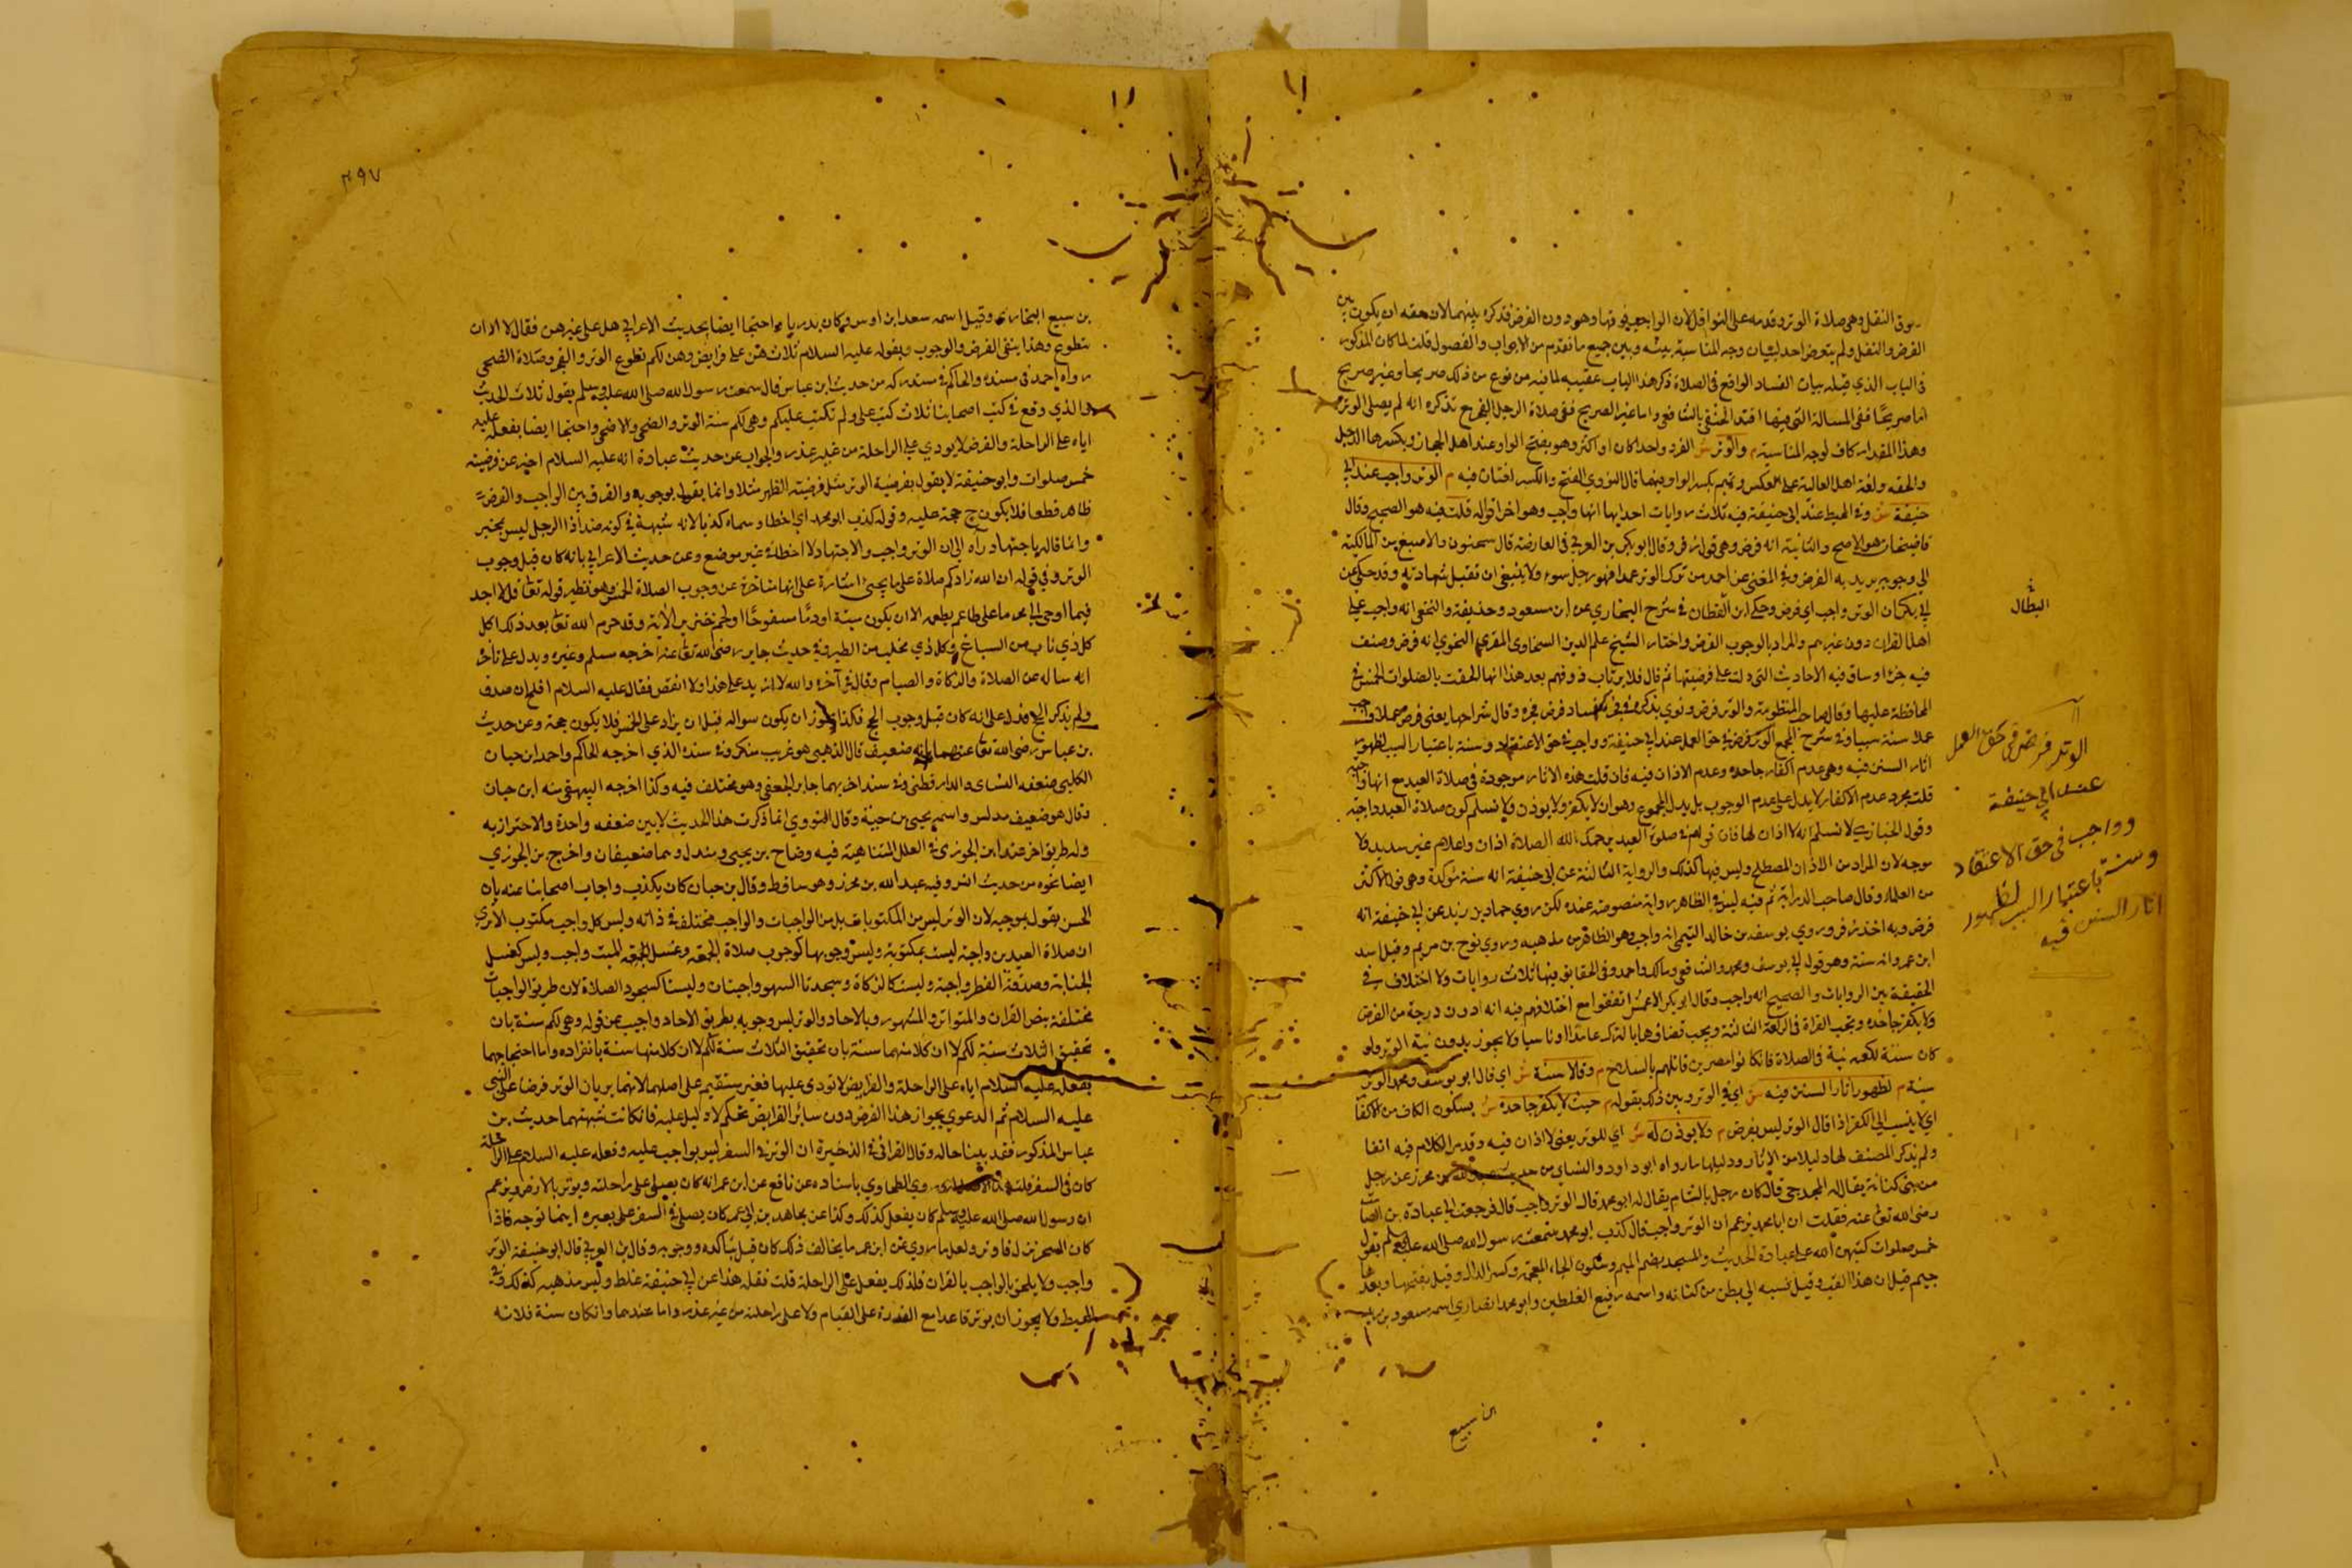 فوق النفل وهى صلاة الوتر وقدمه على النوافل لان الواجب فوقها وهو دون الفرض فذكره بينهما لان حقه ان يكون بين
الفرض والنفل ولم يتعرض احد لبيان وجه المناسبة بينه وبين جميع ما تقدم من الابواب والفصول قلت لما كان المذكور
فى الباب الذي قبله بيان الفساد الواقع فى الصلاة ذكر هذا الباب عقيبه لما فيه من نوع من ذلك صريحا وغير صريح
اما صريحًا ففى المسالة التى فيها اقتدا الحنفى بالشافعى واما غير الصريح ففى صلاة الرجل الفجر مع تذكره انه لم يصل الوتر
وهذا المقدار كاف لوجه المناسبة م والوتر ش الفرد واحدا كان او اكثر وهو بفتح الواو عند اهل الحجاز وبكسرها الذحل
والحقد ولغة اهل العالية على العكس وتميم بكسر الواو فيهما قال النووي الفتح والكسر لغتان فيه م الوتر واجب عند ابي
حنيفة ش وفى المحيط عند ابى حنيفة فيه ثلاث روايات احدايها انها واجب وهو اخر اقواله قلت فيه هو الصحيح وقال
قاضيخان هو الاصح والثانية انه فرض وهى قول زفر وقال ابو بكر بن العربي فى العارضة قال سحنون والاصبغ من المالكية
الى وجوبه يريد به الفرض وفى المغنى عن احمد من ترك الوتر عمدا فهو رجل سوء ولا ينبغى ان تقبل شهادته وقد حكى عن
ابي بكر ان الوتر واجب اي فرض وحكى ابن القطان فى شرح البخاري عن ابن مسعود وحذيفة والنخعى انه واجب على
البطَّال
اهل القران دون غيرهم والمراد بالوجوب الفرض واختار الشيخ علم الدين السخاوى المقري النحوي انه فرض وصنف
فيه جزا وساق فيه الاحاديث التى دلت على فرضيتها ثم قال فلا يرتاب ذو فهم بعد هذا انها الحقت بالصلوات الخمس فى
المحافظة عليها وقال صاحب المنظومة والوتر فرض ونوي بذكره فى فجره فساد فرض فجره وقال شراحها يعنى فرض عملا واجب
عملا سنة سببا وفى شرح المجمع الوتر فرض فى حق العمل عند ابي حنيفة وواجب فى حق الاعتقاد وسنة باعتبار السبب لظهور
اثار السنن فيه وهى عدم اكفار جاحده وعدم الاذان فيه فان قلت هذه الاثار موجودة فى صلاة العيد مع انها واجبة
قلت مجرد عدم الاكفار لا يدل على عدم الوجوب بل يدل المجموع وهو ان لا يكفر ولا يوذن ولا نسلم كون صلاة العيد واجبة
الوتر فرض فى حق العمل
عند ابي حنيفة
وواجب فى حق الاعتقاد
وسنة باعتبار السبب لظهور
اثار السنن فيه
وقول الخبازي لا نسلم انه لا اذان لها فان قولهم فى صلوة العيد يرحمك الله الصلاة اذان واعلام غير سديد فلا
موجه لان المراد من الاذان المصطلح وليس فيها كذلك والرواية الثالثة عن ابى حنيفة انه سنة مؤكدة وهى قول الاكثر
من العلماء وقال صاحب الدراية ثم فيه ليس فى الظاهر رواية منصوصة عنده لكن روي حماد بن زيد عن ابي حنيفة انه
فرض وبه اخذ زفر وروي يوسف بن خالد التيمى انه واجب وهو الظاهر من مذهبه وروي نوح بن مريم وقيل اسد
ابن عمرو انه سنة وهو قول ابى يوسف ومحمد والشافعى ومالك واحمد وفى الحقايق فيها ثلاث روايات ولا اختلاف فى
الحقيقة بين الروايات والصحيح انه واجب وقال ابو بكر الاعمش اتفقوا مع اختلافهم فيه انه ادون درجة من الفرض
ولا يكفر جاحده وتجب القراة فى الركعة الثالثة ويجب قضاوها بالترك عامدا او ناسيا ولا يجوز بدون نية الوتر ولو
كان سنة لكفته نية فى الصلاة فانكانوا مصرين قاتلهم بالسلاح م وقالا سنة ش اي قال ابو يوسف ومحمد الوتر
سنة م لظهور اثار السنن فيه ش اي فى الوتر وبين ذلك بقوله م حيث لا يكفر جاحده ش بسكون الكاف من الاكفار
اي لا ينسب الى الكفر اذا قال الوتر ليس بفرض م ولا يوذن له ش اي للوتر يعنى لا اذان فيه وقد مر الكلام فيه انفا
ولم يذكر المصنف لهما دليلا من الاثار ودليلهما ما رواه ابو داود والنساي من حديث عبد الله بن محيريز عن رجل
من بنى كنانة يقال له المخدجى قال كان رجل بالشام يقال له ابو محمد قال الوتر واجب قال فرجعت الى عبادة بن الصامت
رضى الله تعالى عنه فقلت ان ابا محمد يزعم ان الوتر واجب قال كذب ابو محمد سمعت رسول الله صلى الله عليه وسلم يقول
خمس صلوات كتبهن الله على عباده الحديث والمخدجى بضم الميم وسكون الخاء المعجمة وكسر الدال وقيل بفتحها وبعدها
جيم قيل ان هذا لقبه وقيل نسبه الى بطن من كنانة واسمه رفيع الفلسطينى وابو محمد انصاري اسمه مسعود بن
ابن سبيع
٢٩٧
بن سبيع البخاري وقيل اسمه سعد ابن اوس وكان بدريا م واحتجا ايضا بحديث الاعرابي هل على غيرهن فقال لا الا ان
يتطوع وهذا ينفى الفرض والوجوب وبقوله عليه السلام ثلاث هن على فرايض وهن لكم تطوع الوتر والفجر وصلاة الضحى
رواه احمد فى مسنده والحاكم فى مستدركه من حديث ابن عباس قال سمعت رسول الله صلى الله عليه وسلم يقول ثلاث الحديث
والذي وقع فى كتب اصحابنا ثلاث كتبت على ولم تكتب عليكم وهى لكم سنة الوتر والضحى والاضحى واحتجا ايضا بفعله عليه
اياه على الراحلة والفرض لا يودي على الراحلة من غير عذر والجواب عن حديث عبادة انه عليه السلام اخبر عن فرضية
خمس صلوات وابو حنيفة لا يقول بفرضية الوتر مثل فرضية الظهر مثلا وانما يقول بوجوبه والفرق بين الواجب والفرض
ظاهر قطعا فلا يكون ح حجة عليه وقوله كذب ابو محمد اي اخطا وسماه كذبا لانه شبهه فى كونه ضد اذا الرجل ليس بمخبر
وانما قاله باجتهاد راه الى ان الوتر واجب والاجتهاد لا اخطاء غير موضع وعن حديث الاعرابي بانه كان قبل وجوب
الوتر وفى قوله ان الله زادكم صلاة على ما يجيئ اشارة على انها متاخرة عن وجوب الصلاة الخمس وهو نظير قوله تعا قل لا اجد
فيما اوحى الى محرما على طاعم يطعمه الا ان يكون ميتة او دمًا مسفوحًا او لحم خنزير الاية وقد حرم الله تعا بعد ذلك اكل
كل ذي ناب من السباع وكل ذي مخلب من الطير وفى حديث جابر رضى الله تعا عنه اخرجه مسلم وغيره ويدل على تاخر
انه ساله عن الصلاة والزكاة والصيام وقال فى آخره والله لا ازيد على هذا ولا انقص فقال عليه السلام افلح ان صدق
ولم يذكر الحج فدل على انه كان قبل وجوب الحج فكذا يجوز ان يكون سواله قبل ان يزاد على الخمس فلا يكون حجة وعن حديث
بن عباس رضى الله تعا عنهما بانه ضعيف قال الذهبى هو غريب منكر وفى سنده الذي اخرجه الحاكم واحمد ابن حبان
الكلبى ضعفه النساى والدارقطنى وفى سند اخر بهما جابر الجعفى وهو مختلف فيه وكذا اخرجه البيهقى منه ابن حبان
وقال هو ضعيف مدلس واسمه يحيى بن حية وقال النووي انما ذكرت هذا الحديث لابين ضعفه واحذر والاحتراز به
وله طريق اخر عند ابن الجوزى فى العلل المتناهية فيه وضاح بن يحيى ومندل وهما ضعيفان واخرج بن الجوزي
ايضا نحوه من حديث انس وفيه عبد الله بن محرز وهو ساقط وقال بن حبان كان يكذب واجاب اصحابنا عنه بان
الحسن يقول بموجبه لان الوتر ليس من المكتوبات بل من الواجبات والواجب مختلف فى ذاته وليس كل واجب مكتوب الا ترى
ان صلاة العيدين واجبة ليست بمكتوبة وليس وجوبها كوجوب صلاة الجمعة وغسل الجمعة الميت واجب وليس كغسل
الجنابة وصدقة الفطر واجبة وليست كالزكاة وسجدتا السهو واجبتان وليستا كسجود الصلاة لان طريق الواجبات
مختلفة بنص القران والمتواتر والمشهور وبالاحاد والوتر ليس وجوبه بطريق الاحاد واجيب عن قوله وهى لكم سنة بان
تحقيق الثلاث سنة لكم لا ان كلا منهما سنة بان تحقيق الثلاث سنة لكم لا ان كلا منها سنة بانفراده واما احتجاجهما
بفعله عليه السلام اياه على الراحلة والفرايض لا تودى عليها فغير مستقيم على اصلهما لانهما يريان الوتر فرضا على النبى
عليه السلام ثم الدعوي بجواز هذا الفرض دون سائر الفرايض تحكم لا دليل عليه فانكانت شبهتهما حديث بن
عباس المذكور فقد بينا حاله وقال القرافى فى الذخيرة ان الوتر فى السفر ليس بواجب عليه وفعله عليه السلام على الراحلة
كان فى السفر قلنا روى الطحاوي باسناده عن نافع عن ابن عمر انه كان يصلى على راحلته ويوتر بالارض ويزعم
ان رسول الله صلى الله عليه وسلم كان يفعل كذلك وكذا عن مجاهد بن ابى عمر كان يصلى فى السفر على بعيره اينما توجه فاذا
كان السحر نزل فاوتر ولعل ما روي عن ابن عمر ما يخالف ذلك كان قبل تاكده ووجوبه وقال بن العربي قال ابو حنيفة الوتر
واجب ولا يلحق بالواجب بالقران فلذلك يفعل على الراحلة قلت نقله هذا عن ابي حنيفة غلط وليس مذهبه كذلك ففى
المحيط ولا يجوز ان يوتر قاعدا مع القدرة على القيام ولا على راحلته من غير عذر واما عندهما وانكان سنة فلانه